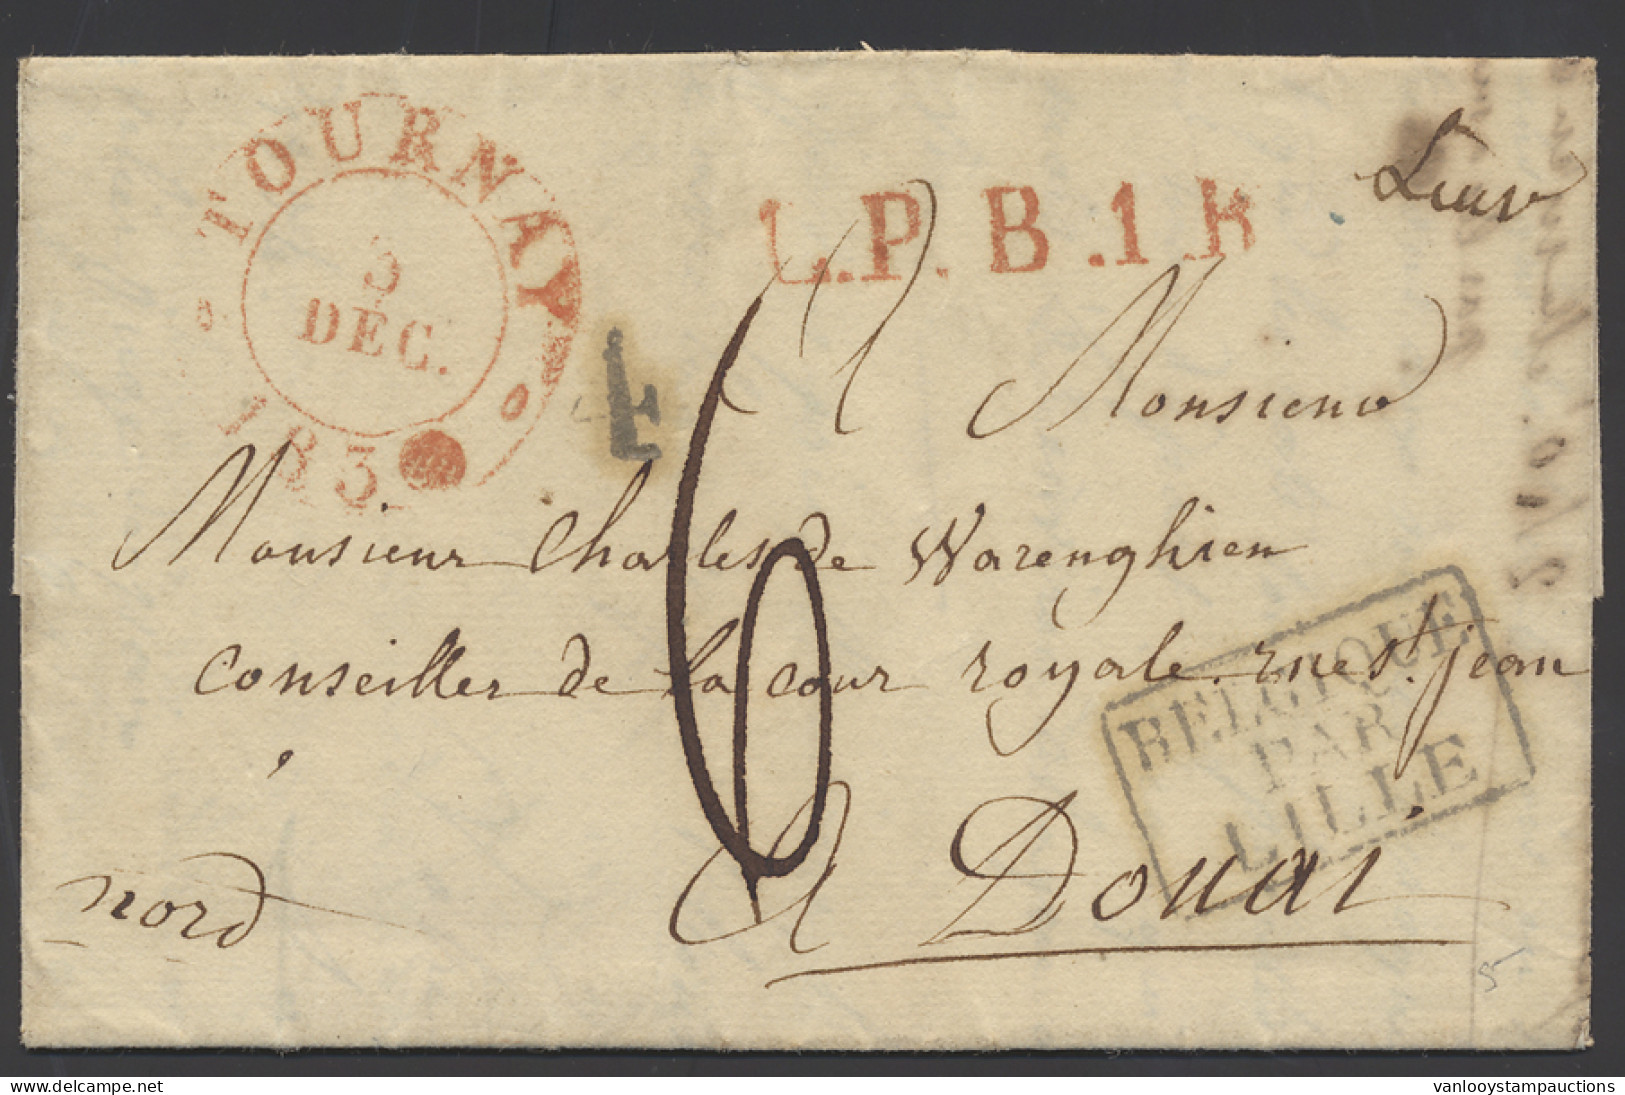 TOURNAY
3
DEC.
183
L.P.B.1.R
4
6
A Monsieur
Monsieur Charles de Warenghien
conseiller de la cour royale. rue st. jean
à Douai
nord
BELGIQUE
PAR
LILLE
5
delcampe.net
vanlooystampauctions